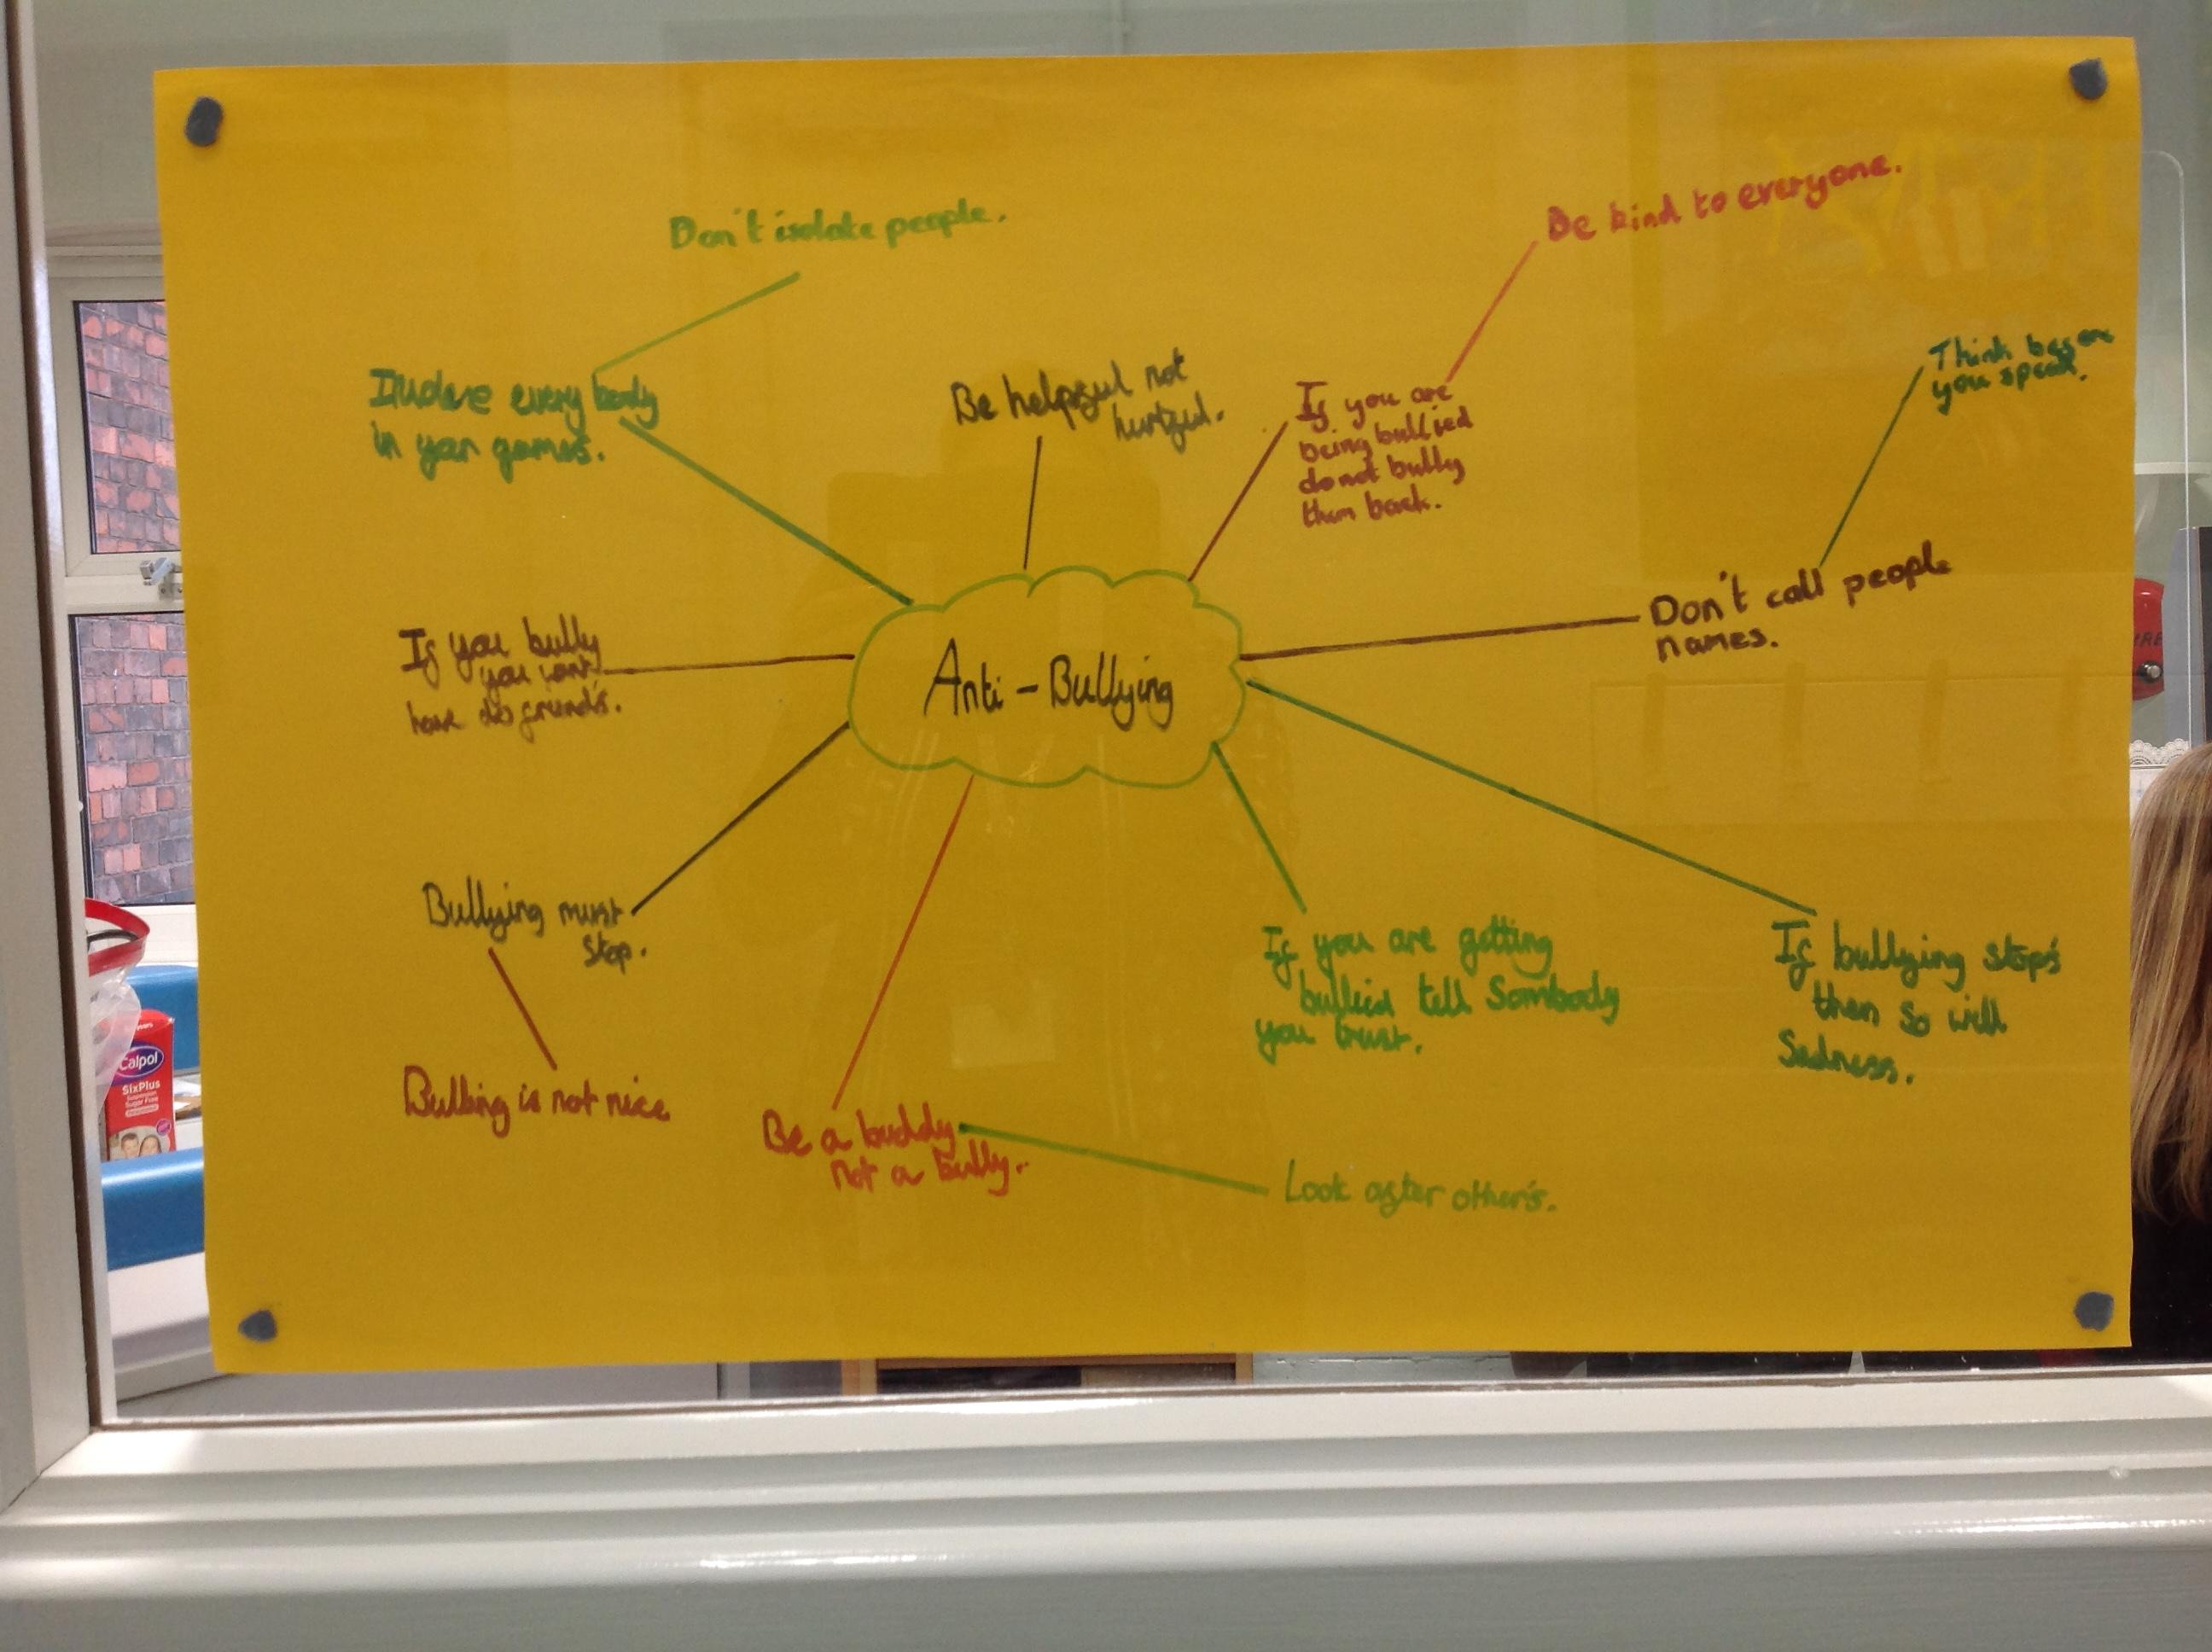 Don't isolate people.
Be kind to everyone.
Think before
you speak.
Include every body
in your games.
Be helpful not
hurtful.
If you are
being bullied
do not bully
them back.
Don't call people
names.
If you bully
you wont
have friend's.
Anti-Bullying
Bullying must
stop.
Bulling is not nice
Be a buddy
not a bully.
Look after other's.
If you are getting
bullied tell Sombody
you trust.
If bullying stop's
then so will
Sadness.
Calpol
SixPlus
Sugar Free